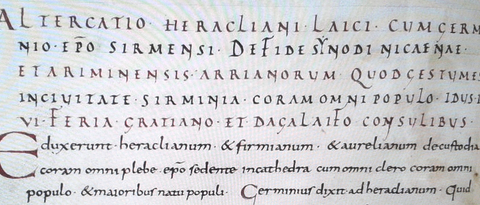 ALTERCATIO · HERACLIANI · LAICI · CUM GERM
NIO · EPO SIRMENSI · DE FIDE SYNODI NICAENAE ·
ET ARIMINENSIS · ARRIANORUM · QUOD GESTUM ES
IN CIVITATE · SIRMINIA · CORAM OMNI POPULO · IDUS
VI · FERIA · GRATIANO · ET DAGALAIFO CONSULIBUS ·
Eduxerunt · heraclianum · & firmianum · & aurelianum de custodia
coram omni plebe · epo sedente in cathedra cum omni clero coram omni
populo · & maioribus natu populi · Germinius dixit ad heraclianum · Quid